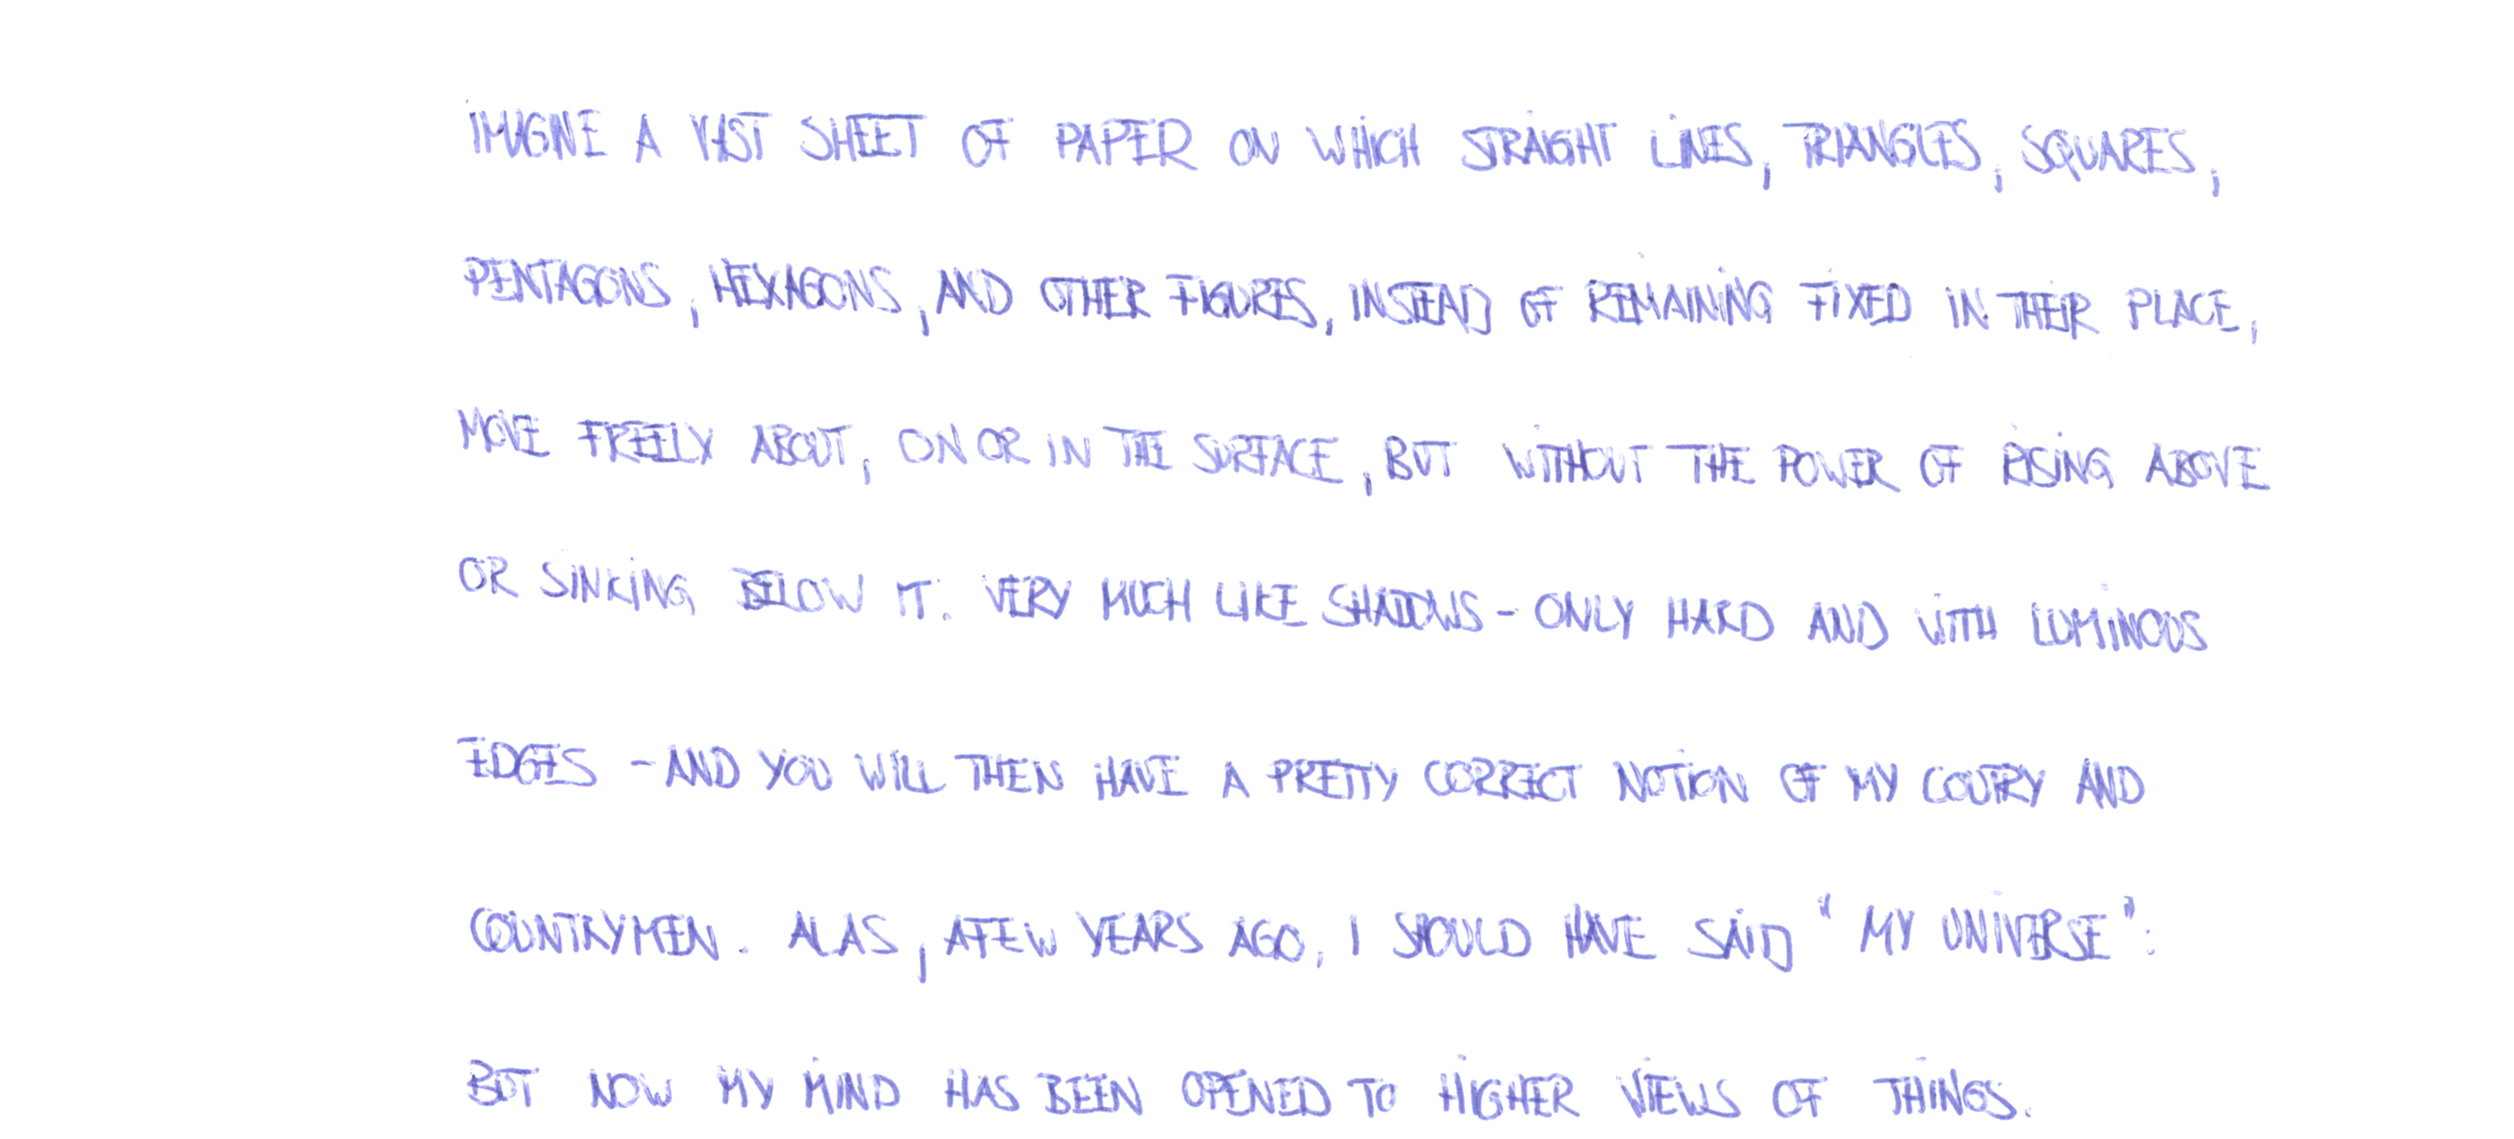 IMAGINE A VAST SHEET OF PAPER ON WHICH STRAIGHT LINES, TRIANGLES, SQUARES,
PENTAGONS, HEXAGONS, AND OTHER FIGURES, INSTEAD OF REMAINING FIXED IN THEIR PLACE,
MOVE FREELY ABOUT, ON OR IN THE SURFACE, BUT WITHOUT THE POWER OF RISING ABOVE
OR SINKING BELOW IT. VERY MUCH LIKE SHADOWS - ONLY HARD AND WITH LUMINOUS
EDGES - AND YOU WILL THEN HAVE A PRETTY CORRECT NOTION OF MY COUTRY AND
COUNTRYMEN. ALAS, A FEW YEARS AGO, I SHOULD HAVE SAID "MY UNIVERSE":
BUT NOW MY MIND HAS BEEN OPENED TO HIGHER VIEWS OF THINGS.